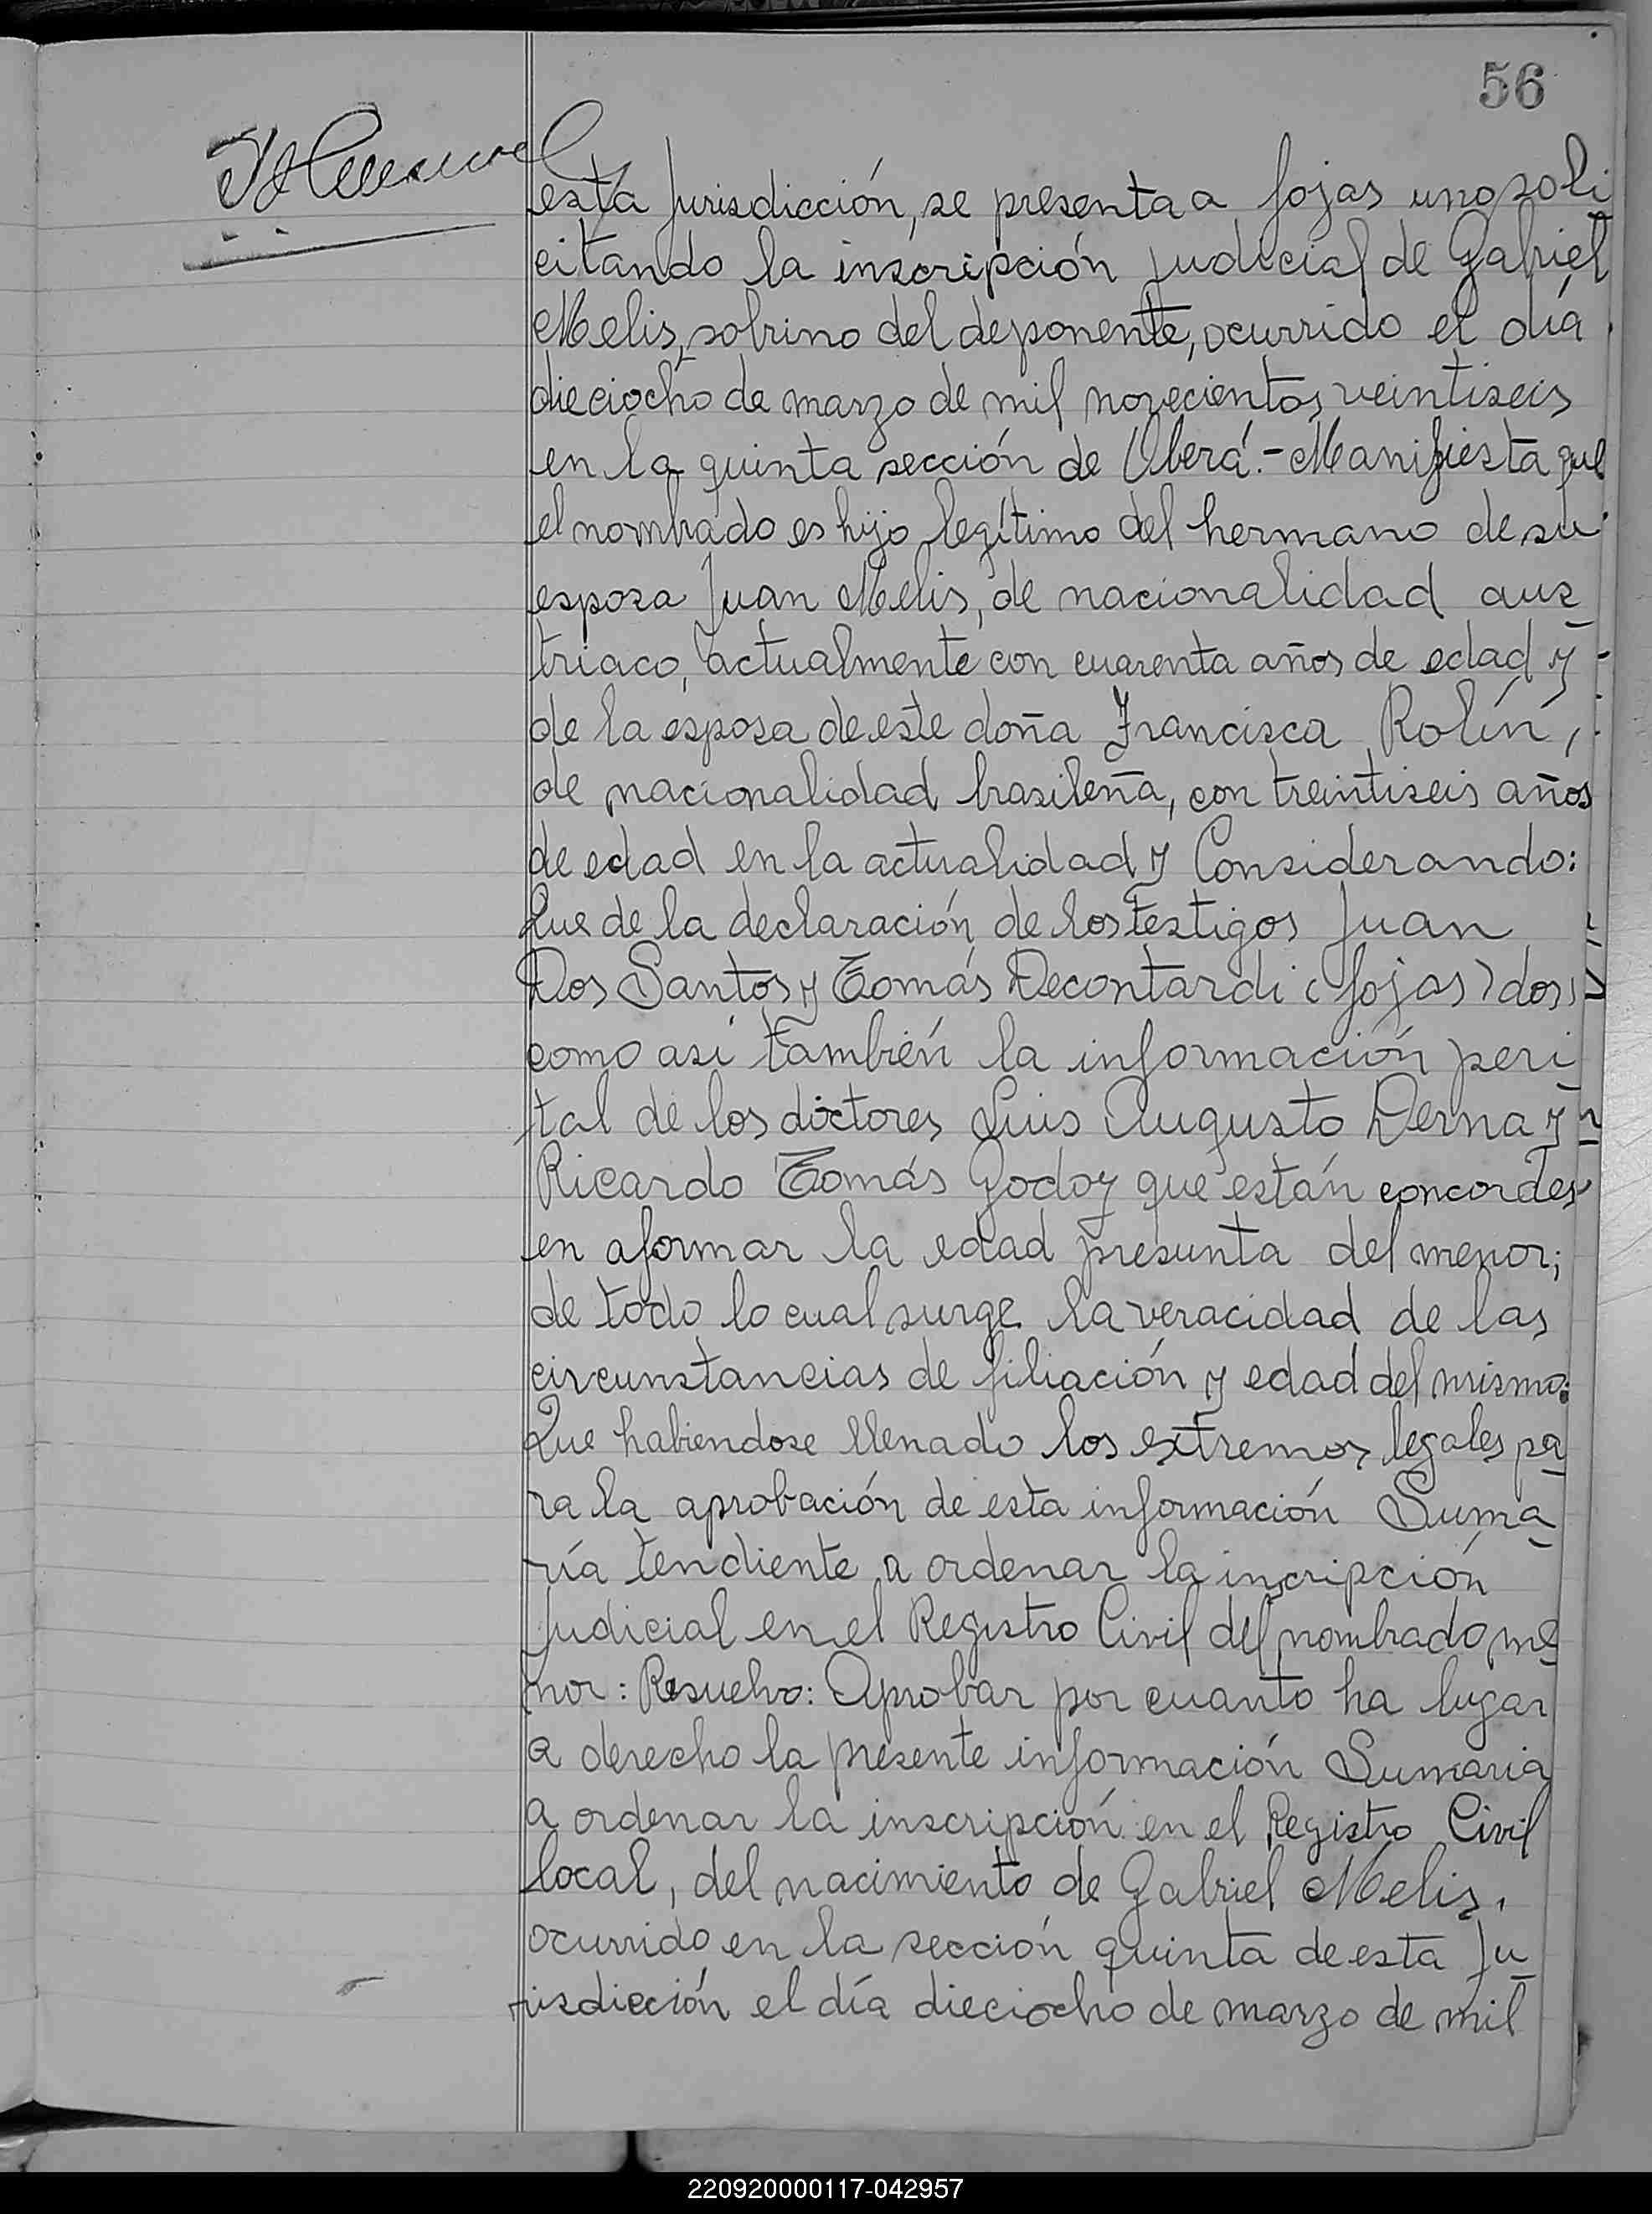 56
esta Jurisdicción, se presenta a fojas uno soli
citando la inscripción judicial de Gabriel
Melis, sobrino del deponente, ocurrido el día
dieciocho de marzo de mil novecientos veintiseis
en la quinta sección de Oberá.- Manifiesta que
el nombrado es hijo legítimo del hermano de su
esposa Juan Melis, de nacionalidad aus
triaco, actualmente con cuarenta años de edad y
de la esposa de este doña Francisca Rolín,
de nacionalidad brasileña, con treintiseis años
de edad en la actualidad y Considerando:
Que de la declaración de los testigos Juan
Dos Santos y Tomás Decontardi (fojas) dos)
como asi también la información peri
tal de los doctores Luis Augusto Derna y
Ricardo Tomás Godoy que están concordes
en aformar la edad presunta del menor;
de todo lo cual surge la veracidad de las
circunstancias de filiación y edad del mismo:
Que habiendose llenado los extremos legales pa
ra la aprobación de esta información Suma
ría tendiente a ordenar la inscripción
Judicial en el Registro Civil del nombrado me
nor: Resuelvo: Aprobar por cuanto ha lugar
a derecho la presente información Sumaria
a ordenar la inscripción en el Registro Civil
local, del nacimiento de Gabriel Melis,
ocurrido en la sección quinta de esta Ju
risdicción el día dieciocho de marzo de mil
220920000117-042957